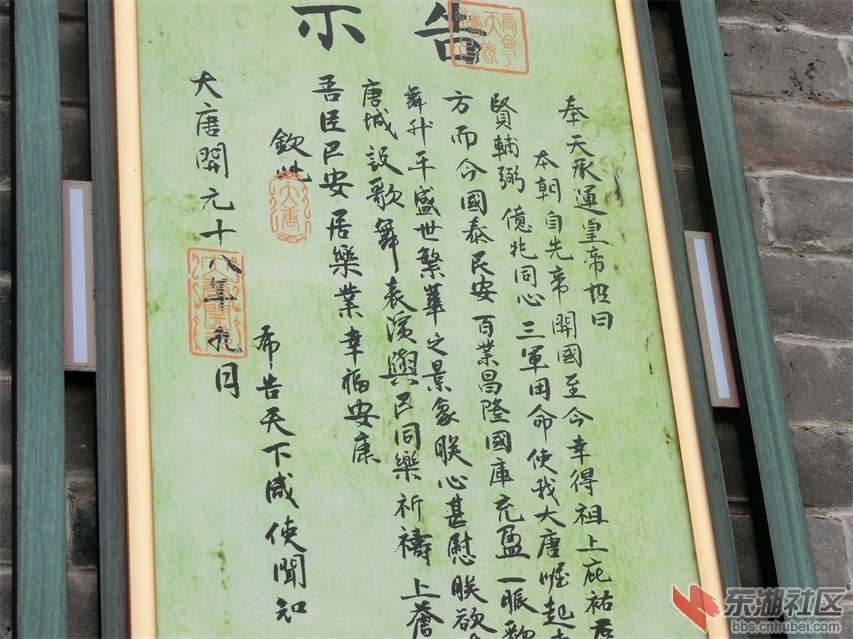 告示
奉天承運皇帝詔曰
本朝自先帝開國至今幸得祖上庇祐
賢輔弼億兆同心三軍用命使我大唐崛起
方而今國泰民安百業昌隆國庫充盈一賬
舞升平盛世繁華之景象朕心甚慰朕欲
唐城設歌舞表演與民同樂祈禱上蒼
吾臣民安居樂業幸福安康
欽此
大唐
布告天下咸使聞知
大唐開元十八年九月
东湖社区
bbs.cnhubei.com